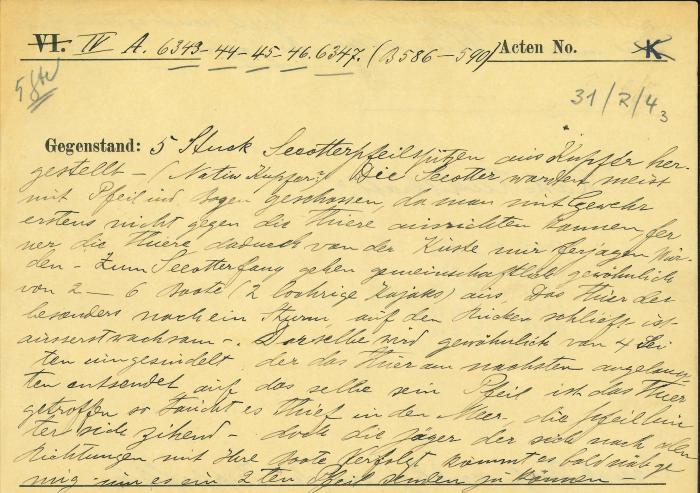 VI. IV A. 6343-44-45-46. 6347. (B 586-590) Acten No. K
5 Stk
31/R/43
Gegenstand: 5 Stuck Seeotterpfeilspitzen aus Kupfer her-
gestellt – (Nativ Kupfer?) Die Seeotter warden meist
mit Pfeil und Bogen geschossen, da man mit Gewehr
erstens nicht gegen die Thiere ausrichten kann, fer
ner die Thiere dadurch von der Küste nur ferjagen wür
den – Zum Seeotterfang gehen gemeinschaftlich gewöhnlich
von 2 – 6 Boote (2 lochrige Kajaks) aus. Das Thier der
besonders nach ein Sturm, auf den Rücken schlieft ist
äusserst wachsam –. Dorselbe wird gewöhnlich von 4 Sei
ten umgesindelt der das Thier am nachsten angelaun
ten entsendet auf das selbe sein Pfeil ist das Thier
getroffen so taucht es thief in den Meer, die Pfeil hin
ter sich zihend – doch die Jäger der sich nach allen
Richtungen mit Ihre Boote verfolgt kommt es bald nahe ge
nug um es ein 2ten Pfeil senden zu können –